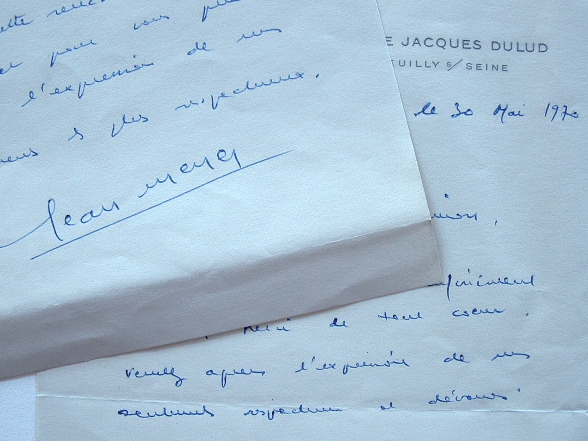 pour vous
l'expression de mes
s plus respectueux.
Jean
E JACQUES DULUD
EUILLY S/ SEINE
le 30 Mai 1970
infiniment
merci de tout coeur.
veuillez agréer l'expression de mes
sentiments respectueux et dévoués